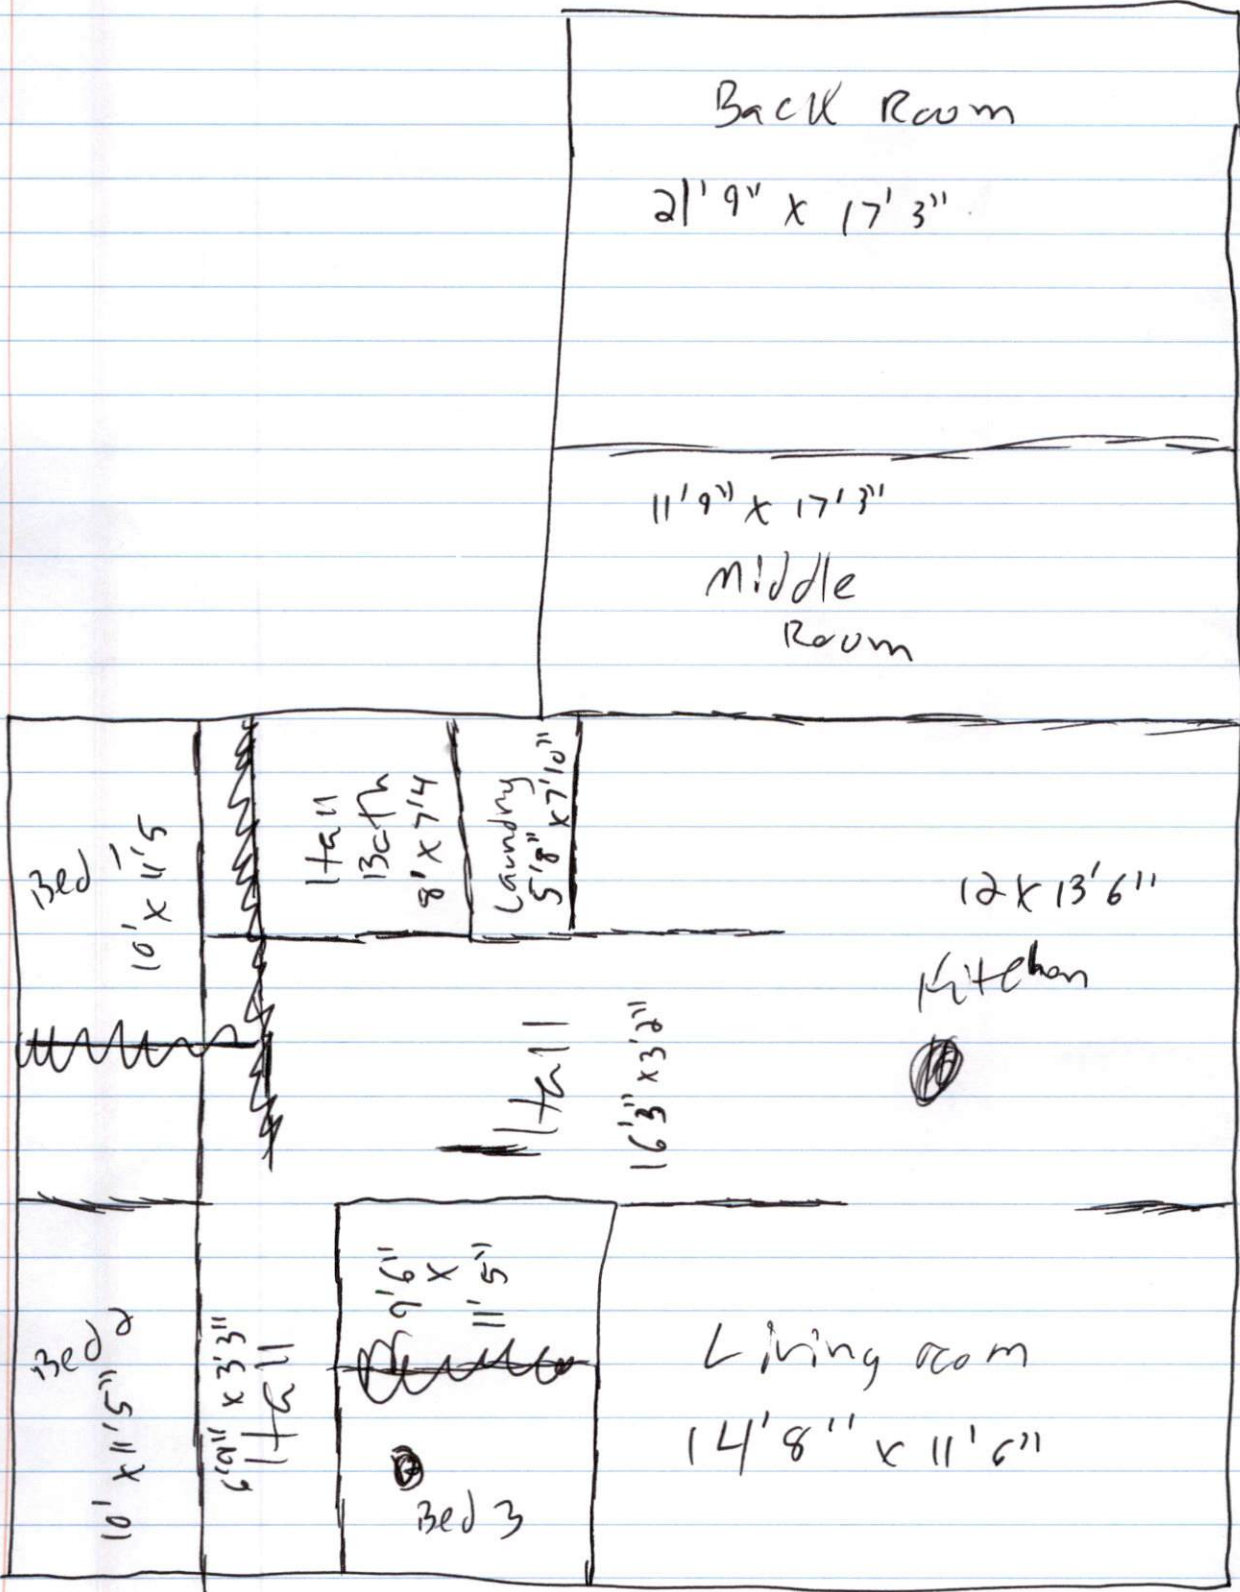 Back Room
21'9" x 17'3"
11'9" x 17'3"
Middle
Room
Bed 1
10' x 11'5
Hall
Bath
8' x 7'4
Laundry
5'8" x 7'10"
12 x 13'6"
Kitchen
Hall
16'3" x 3'2"
Bed 2
10' x 11'5"
x 3'3"
Hall
9'6"
x
11'5"
Bed 3
Living room
14'8" x 11'6"